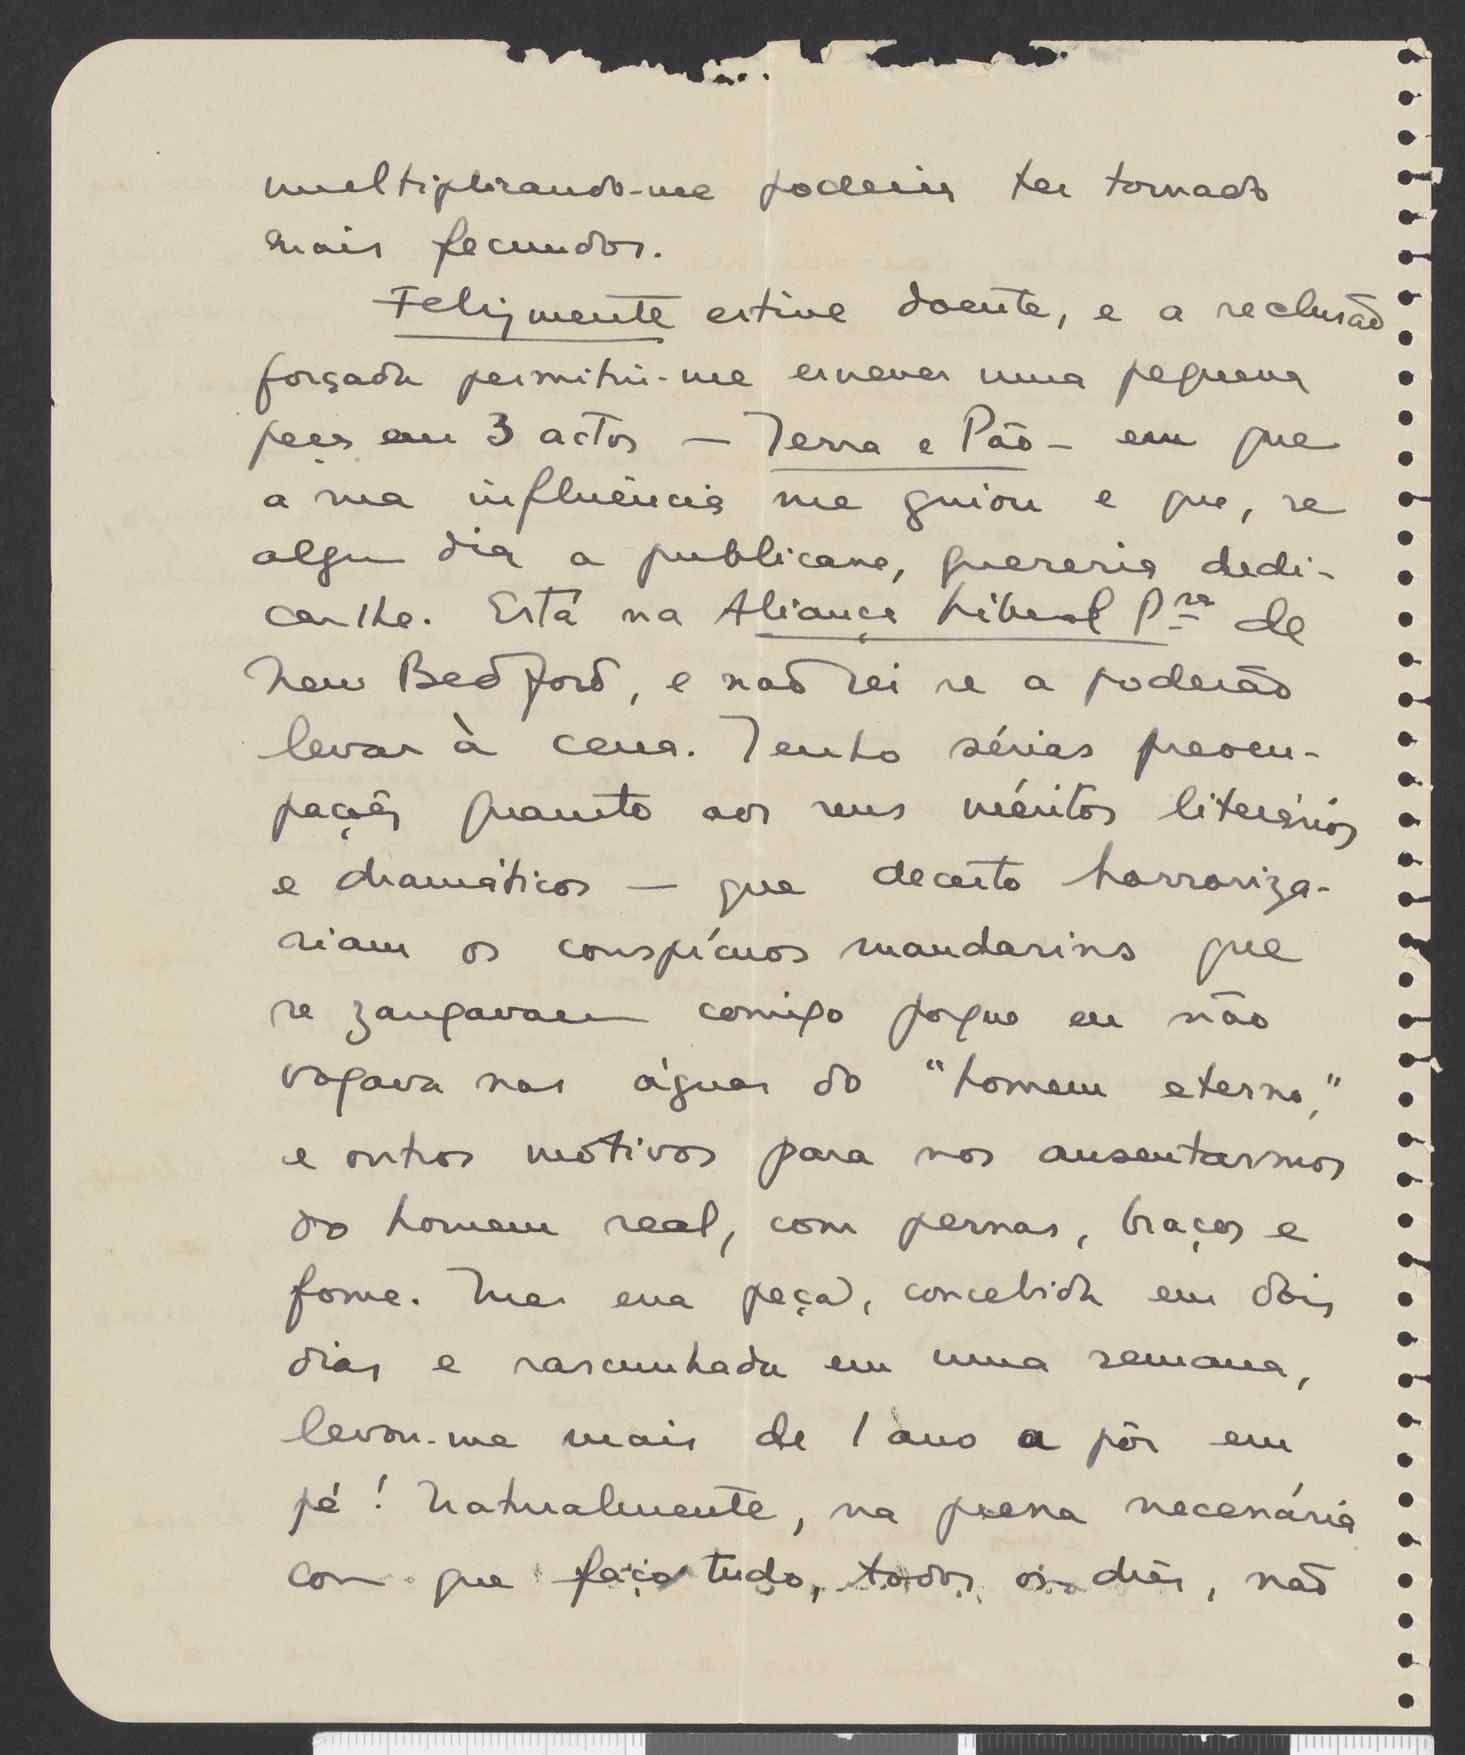 multiplicando-me poderia ter tornado
mais fecundos.
Felizmente estive doente, e a reclusão
forçada permitiu-me escrever uma pequena
peça em 3 actos — Terra e Pão — em que
a sua influência me guiou e que, se
algum dia a publicasse, quereria dedi-
car-lhe. Está na Aliança Liberal Psa de
New Bedford, e não sei se a poderão
levar à cena. Tenho sérias preocu-
pações quanto aos seus méritos literários
e dramáticos — que decerto horroriza-
riam os conspícuos mandarins que
se zangavam comigo porque eu não
vogava nas águas do "homem eterno,"
e outros motivos para nos ausentarmos
do homem real, com pernas, braços e
fome. Mas essa peça, concebida em dois
dias e rascunhada em uma semana,
levou-me mais de 1 ano a pôr em
pé! Naturalmente, na pressa necessária
com que faço tudo, todos os dias, não